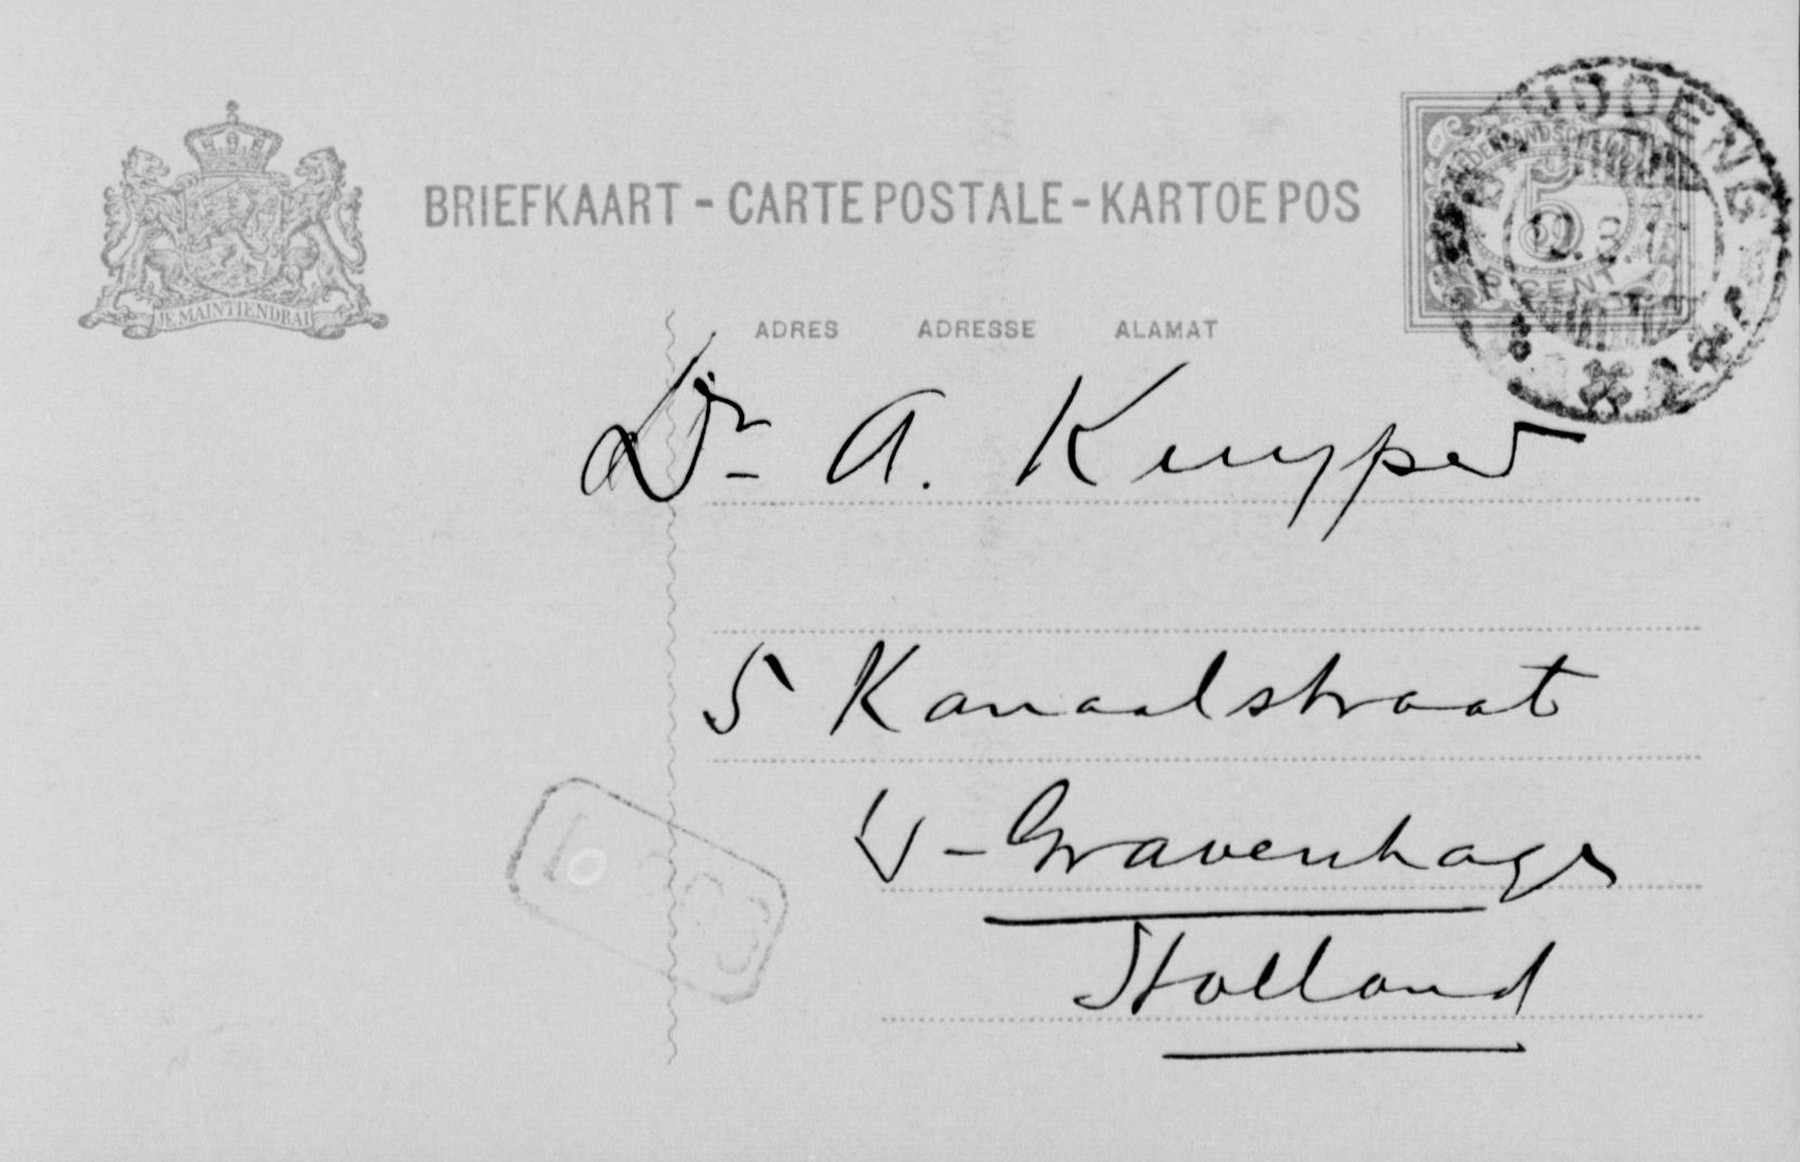 BRIEFKAART - CARTE POSTALE - KARTOE POS
JE MAINTIENDRAI
5
5 CENT
ADRES ADRESSE ALAMAT
Dr A. Kuyper
5 Kanaalstraat
's-Gravenhage
Holland